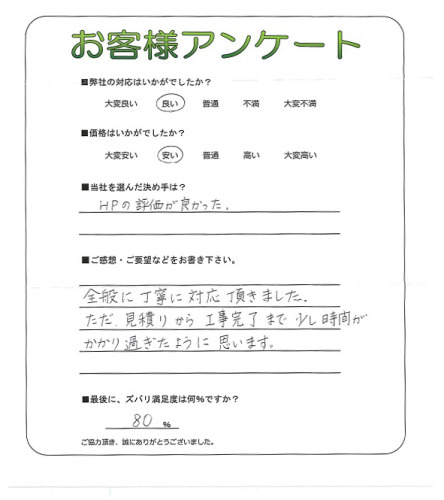 お客様アンケート
■弊社の対応はいかがでしたか?
大変良い 良い 普通 不満 大変不満
■価格はいかがでしたか?
大変安い 安い 普通 高い 大変高い
■当社を選んだ決め手は?
HPの評価が良かった。
■ご感想・ご要望などをお書き下さい。
全般に丁寧に対応頂きました。
ただ、見積りから工事完了まで少し時間が
かかり過ぎたように思います。
■最後に、ズバリ満足度は何%ですか?
80 %
ご協力頂き、誠にありがとうございました。